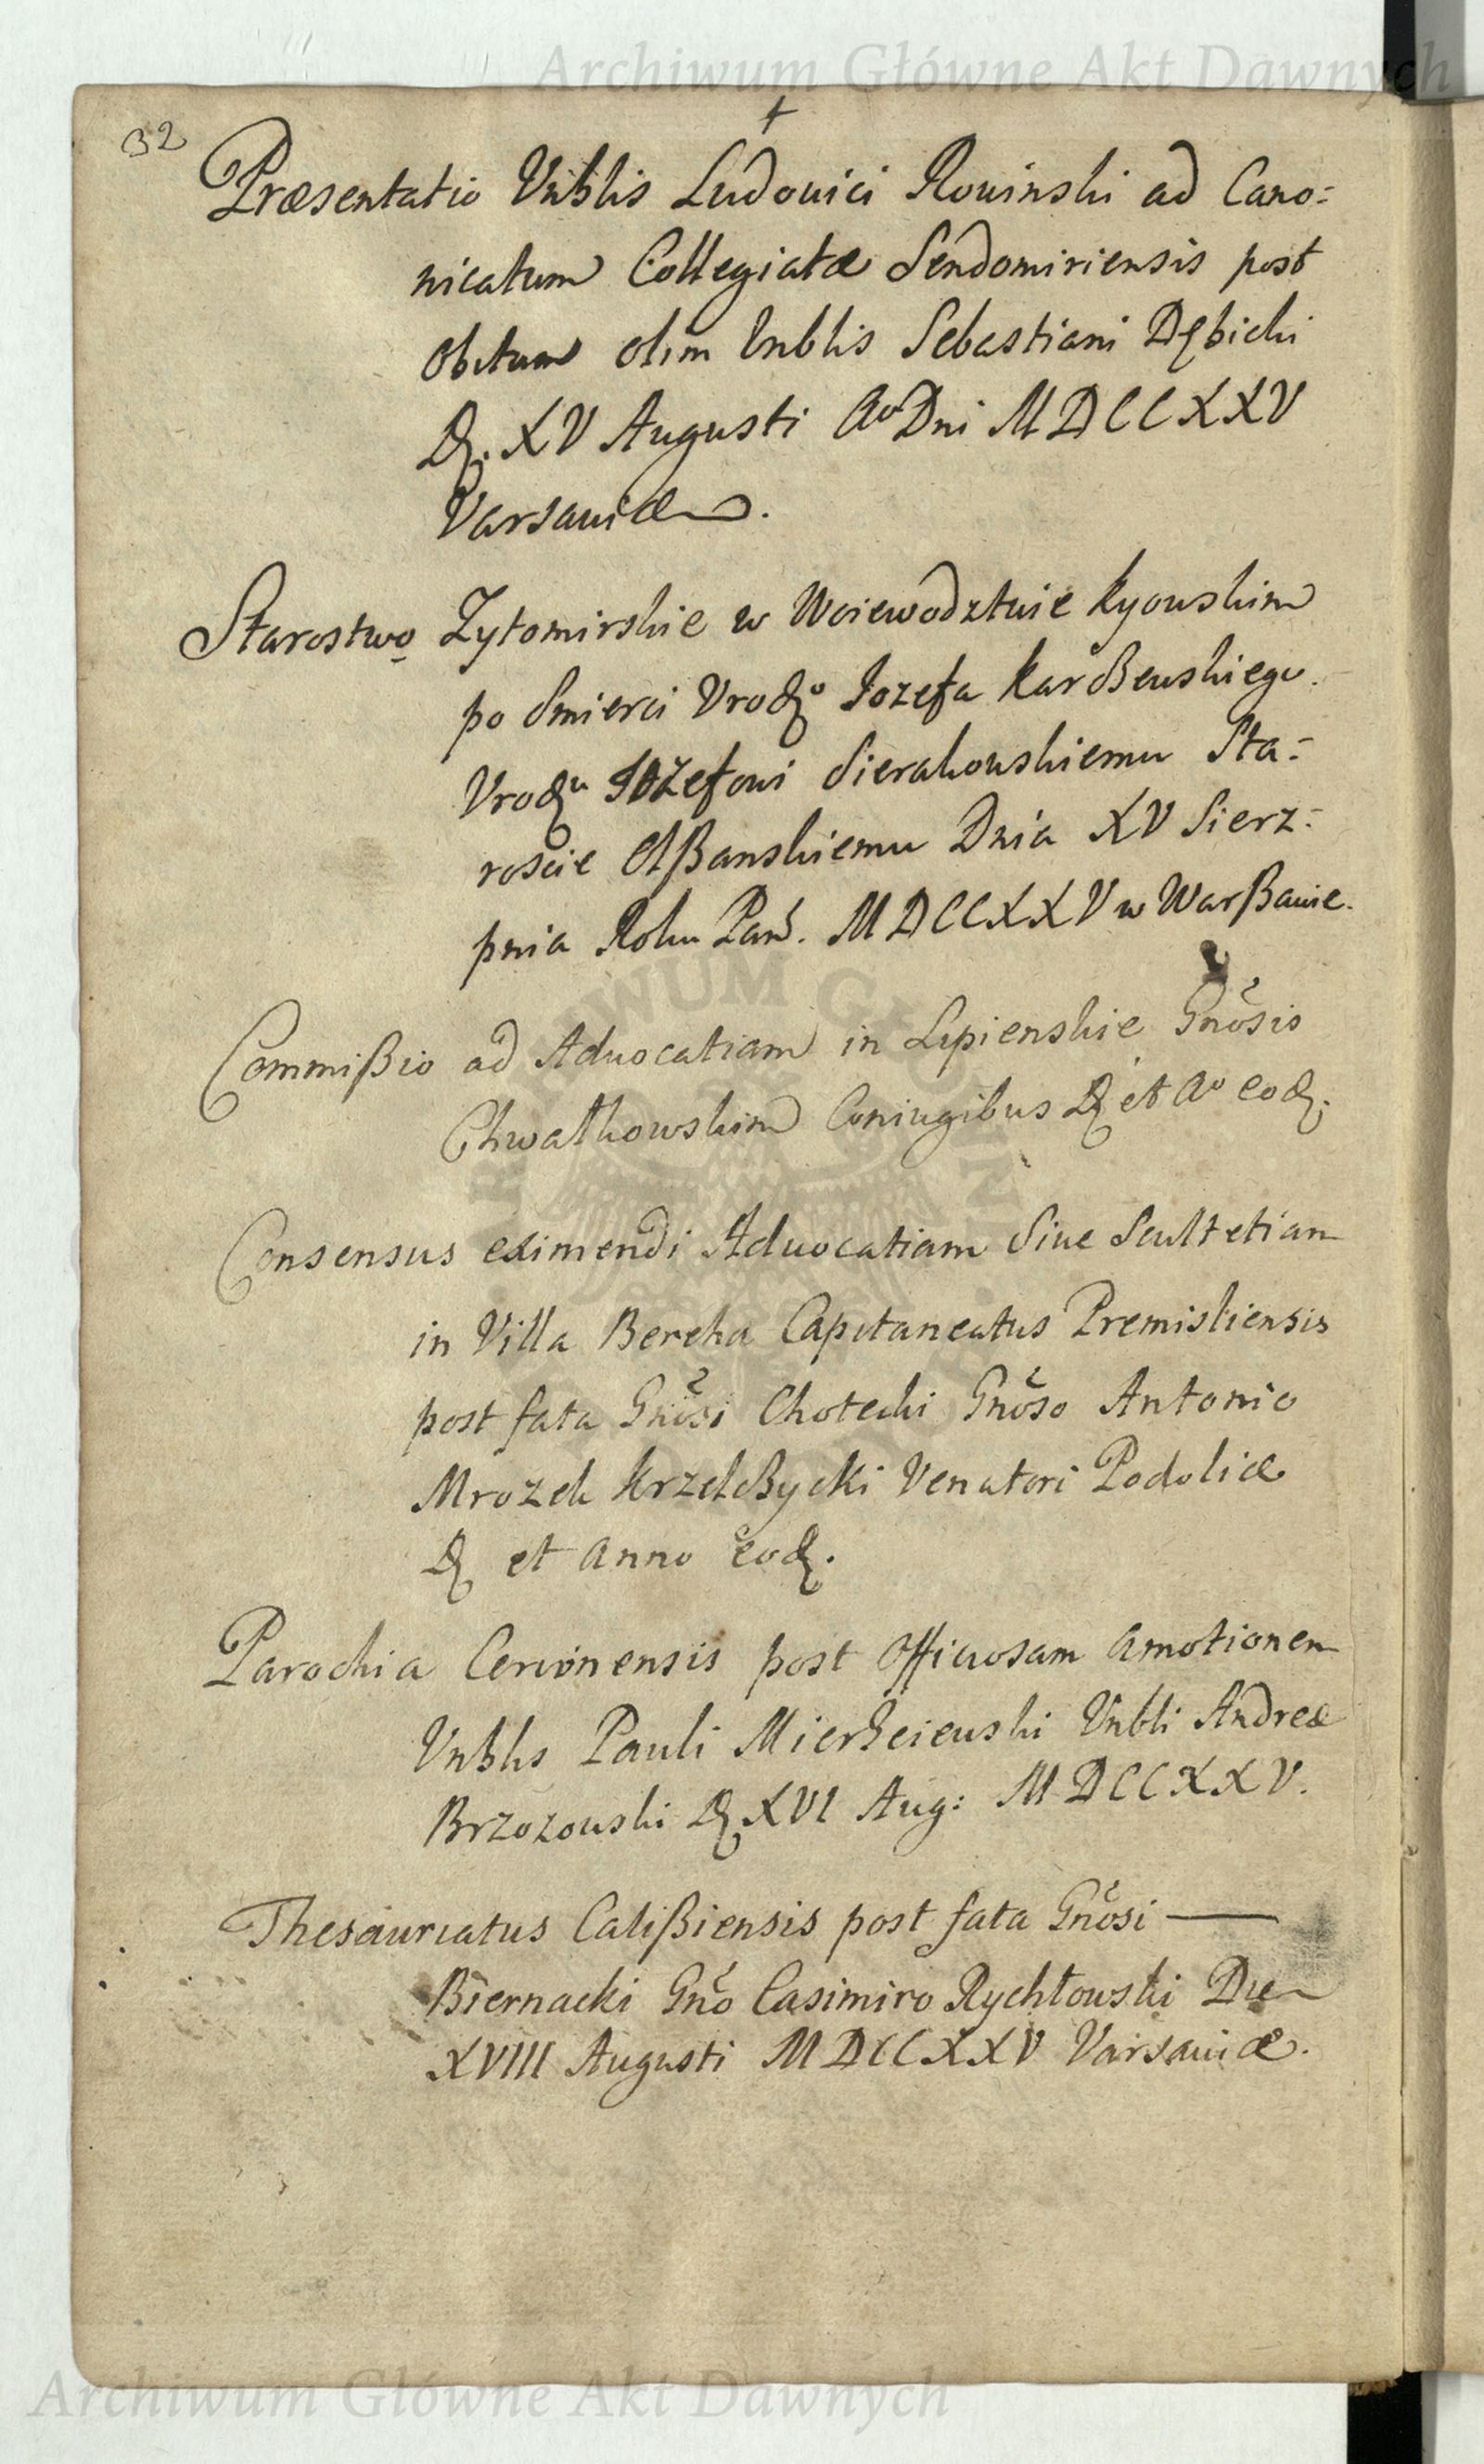 Archiwum Główne Akt Dawnych
32
Præsentatio Vnblis Ludovici Rowinski ad Cano:
nicatum Collegiatæ Sendomiriensis post
obitum olim Vnblis Sebastiani Dębicki
D. XV Augusti Ao Dni MDCCXXV
Varsauiæ.
Starostwo Zytomirskie w Woiewodztwie Kyowskim
po Smierci Vrodzo Iozefa Karßewskiego.
Vrodzu Iozefowi Sierakowskiemu Sta:
roscie Olßanskiemu Dnia XV Sierz:
pnia Roku Pan. MDCCXXV w Warßawie.
Commißio ad Aduocatiam in Lipienskie Gnosis
Chwatkowskim Coniugibus D et Ao eod.
Consensus eximendi Aduocatiam Siue Scultetiam
in Villa Bereha Capitaneatus Premisliensis
post fata Gnosi Chotecki Gnoso Antonio
Mrozek Venatori Podoliæ
D et Anno eod.
Parochia post officiosam amotionem
Vnblis Pauli Vnbli Andreæ
Brzozowski D XVI Aug: MDCCXXV.
Thesauriatus Calißiensis post fata Gnosi —
Biernacki Gno Casimiro Rychłowski Die
XVIII Augusti MDCCXXV Varsauiæ.
Archiwum Główne Akt Dawnych